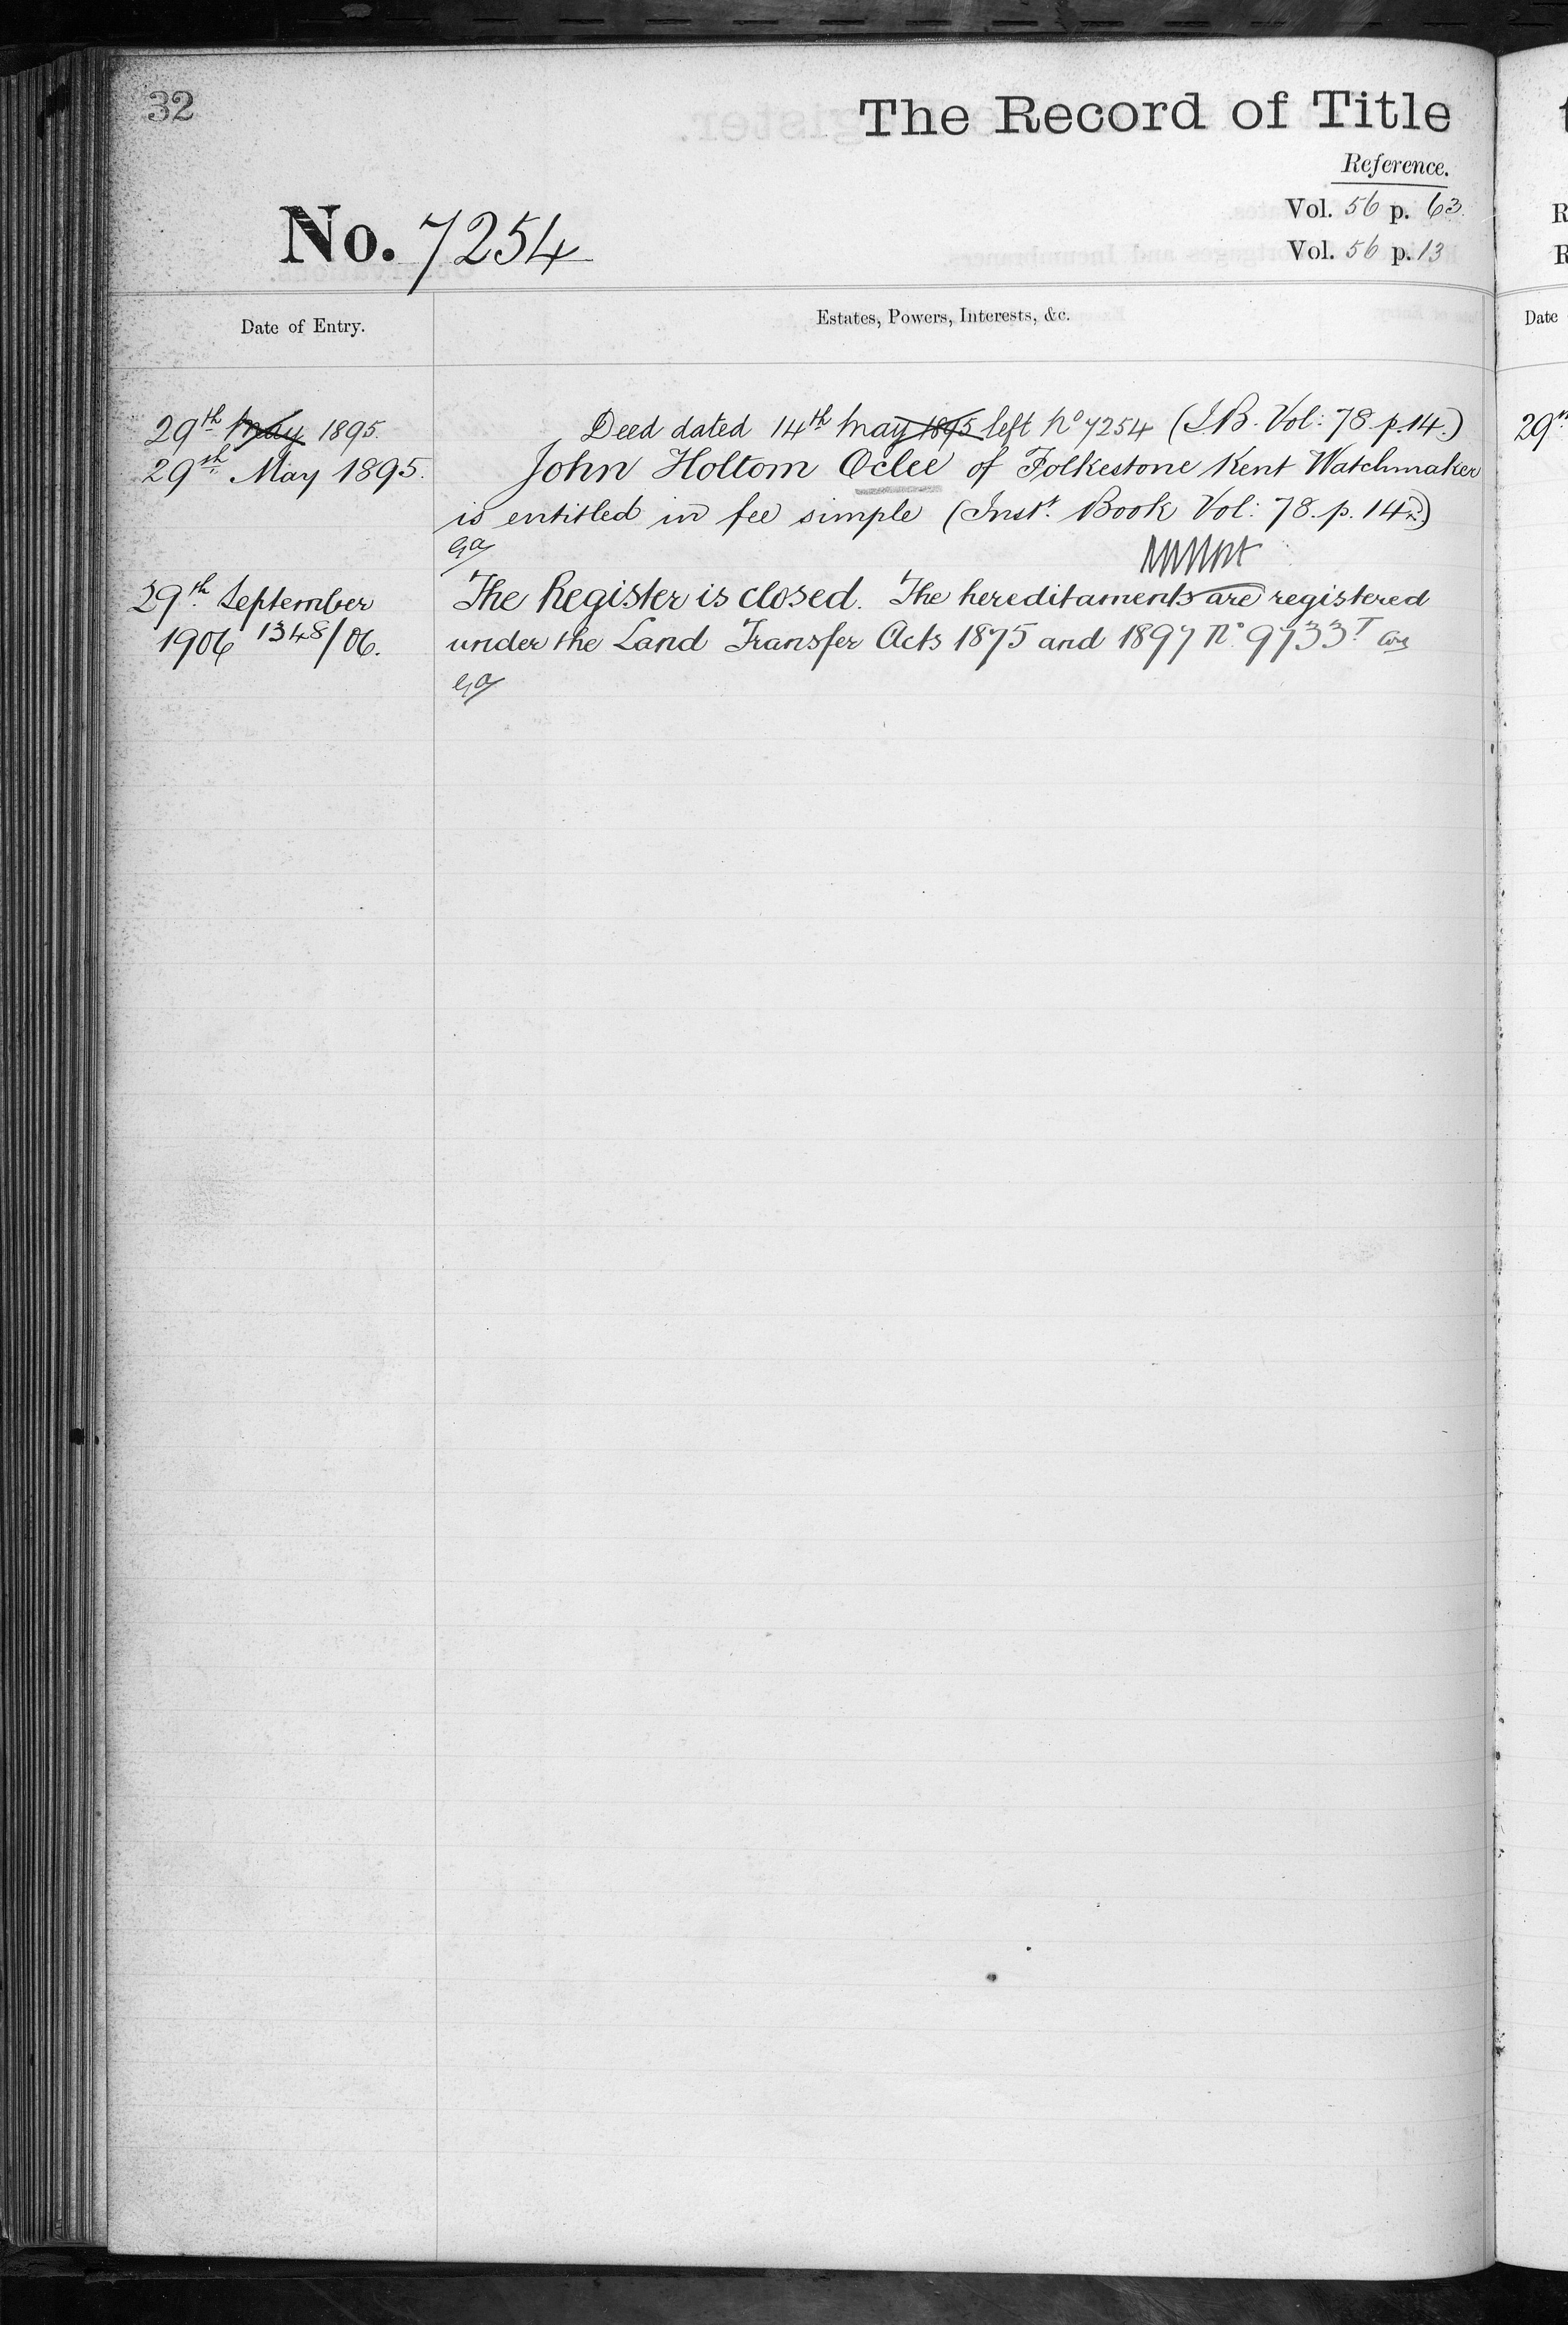 32
The Record of Title
Reference.
Vol. 56 p. 63.
No. 7254
Vol. 56 p. 13
Date of Entry.
Estates, Powers, Interests, &c.
Date
29th May 1895. Deed dated 14th May 1895 left No 7254 (I.B. Vol: 78. p. 14.)
29th May 1895. John Holtom Oclee of Folkestone Kent Watchmaker
is entitled in fee simple (Inst. Book Vol: 78. p. 14.)
29th September The Register is closed. The hereditaments are registered
1906 1348/06. under the Land Transfer Acts 1875 and 1897 No. 9733T
29th